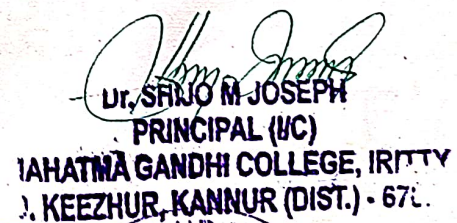 Dr. SHIJO M JOSEPH
PRINCIPAL (I/C)
MAHATMA GANDHI COLLEGE, IRITTY
KEEZHUR, KANNUR (DIST.) - 67